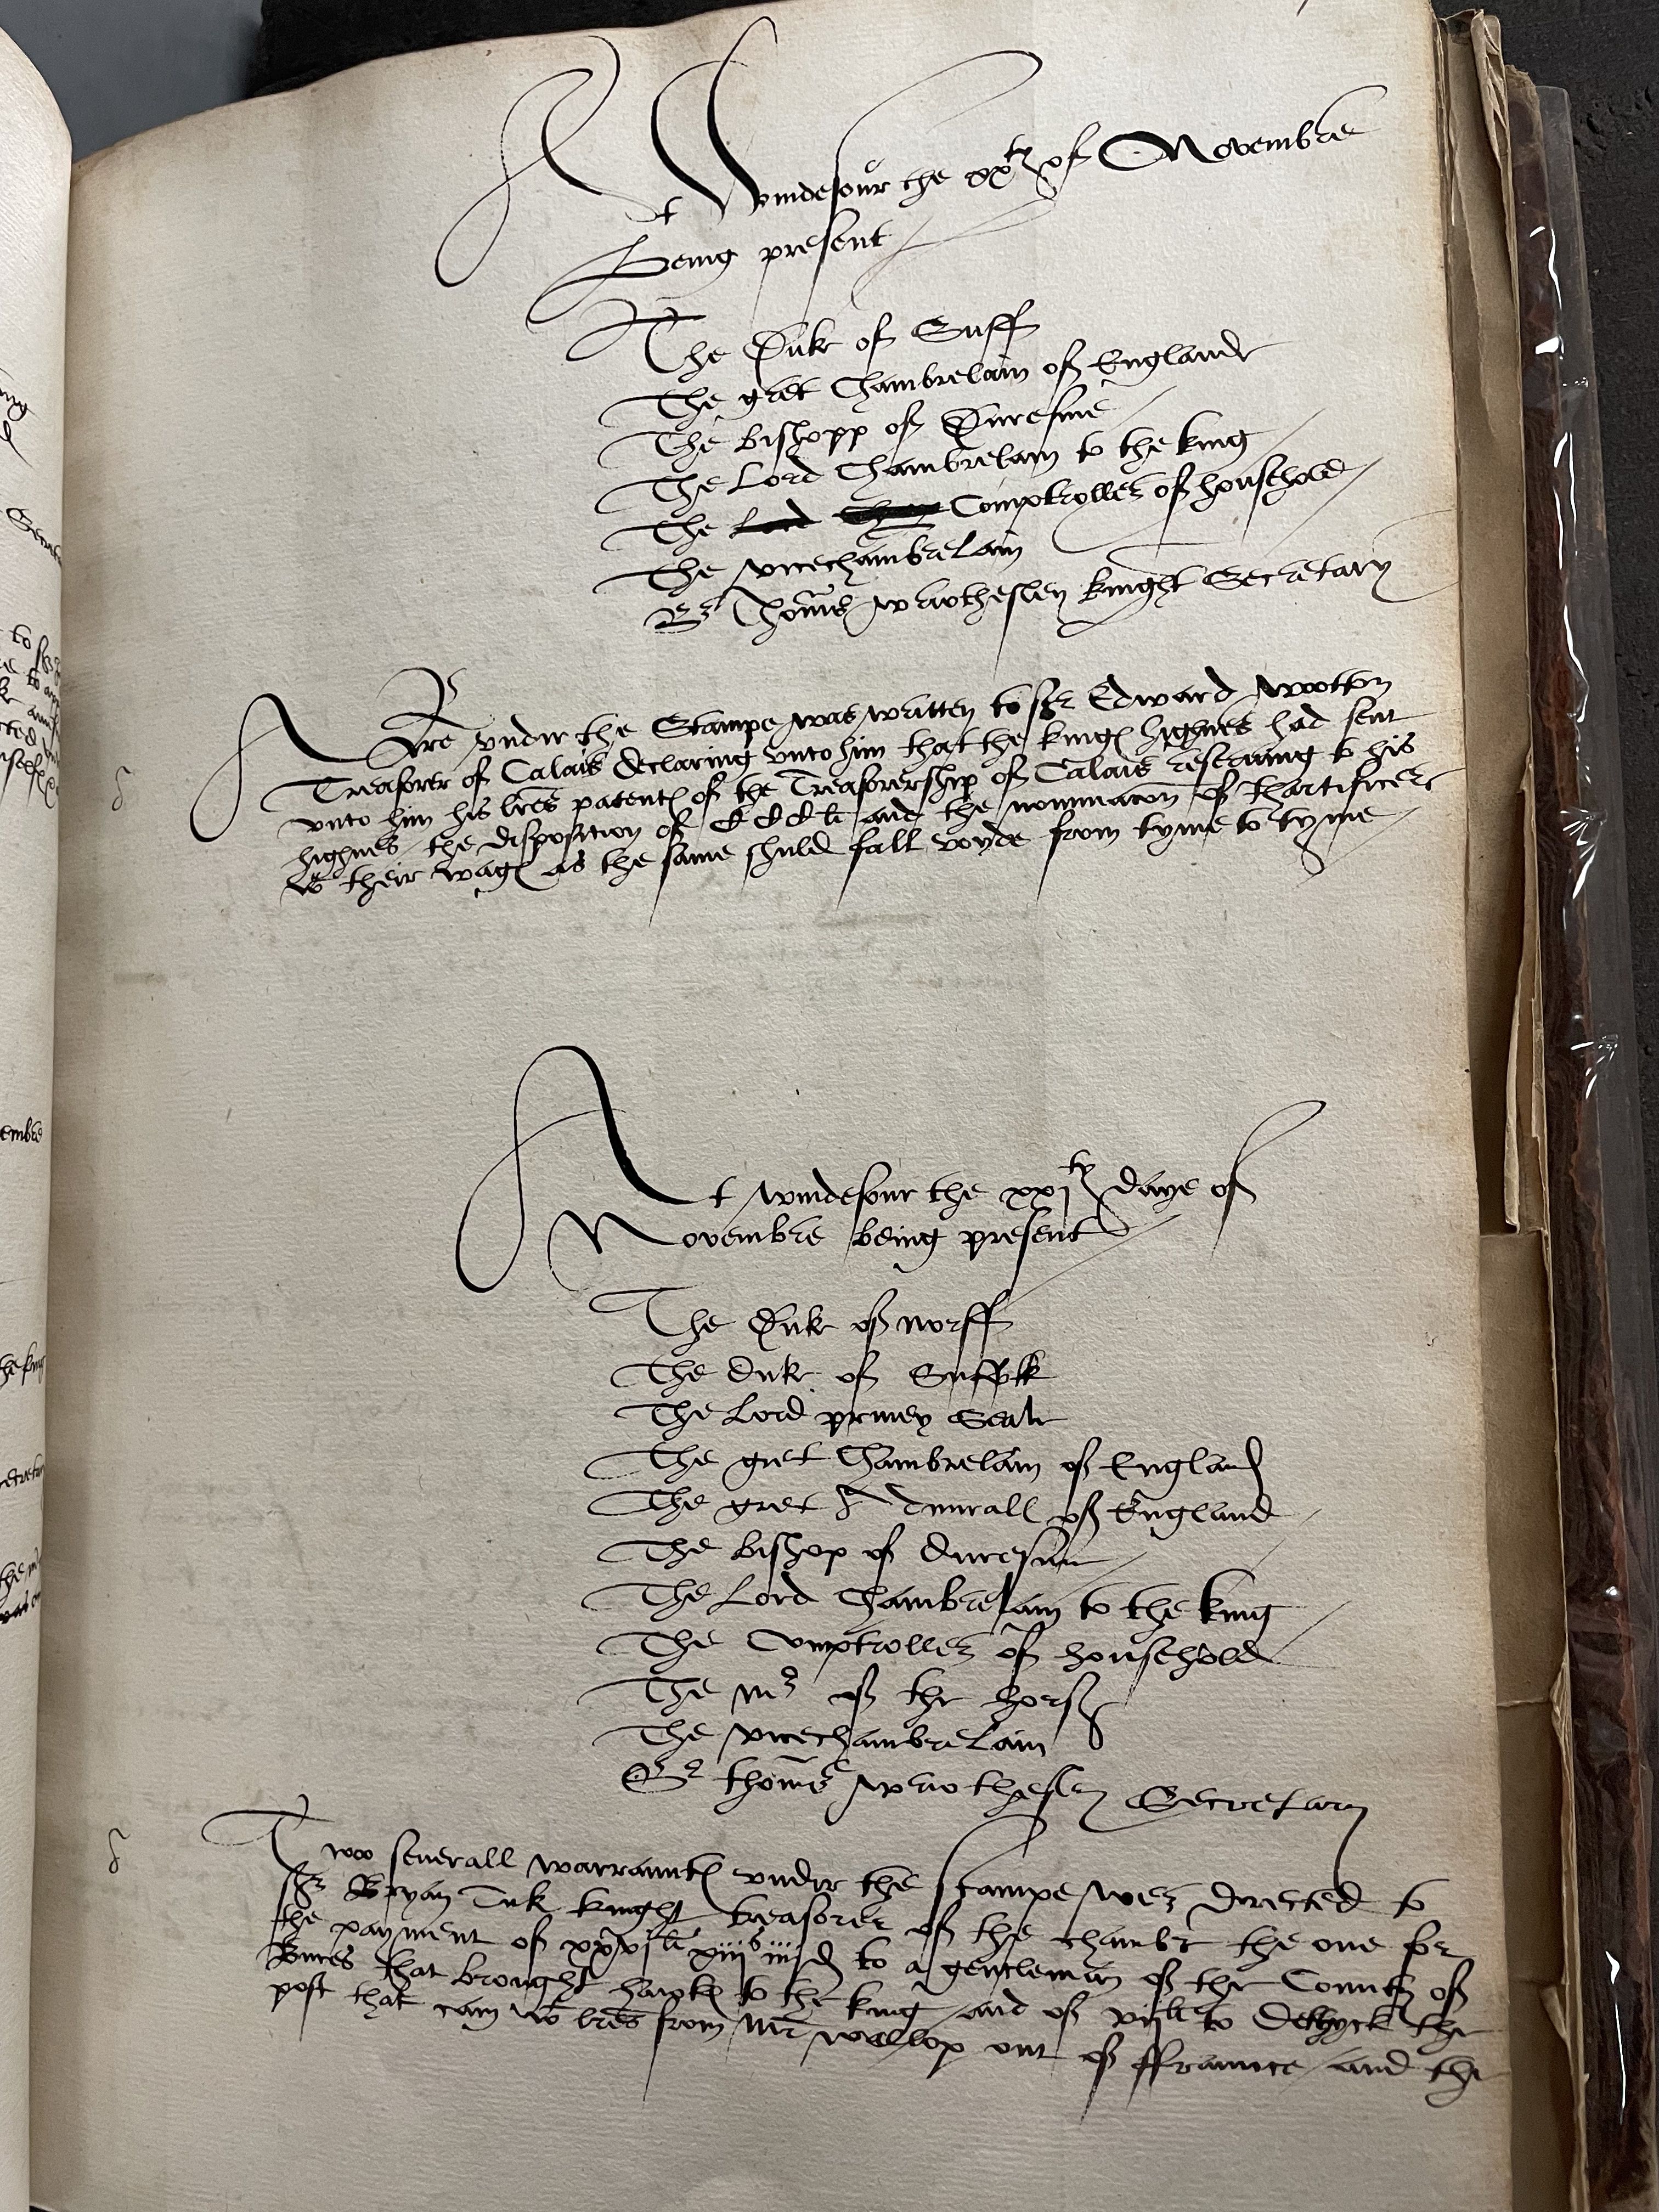 At Windesour the xxty of Novembre
Being present
The Duke of Suff
The gret Chambrelain of Englande
The bishopp of Duresme
The Lord Chambrelain to the king
The Comptroller of household
The vicechambrelain
Sr Thoms wriothesley knight Secretary
A Lre vnder the Stampe was written to Sr Edward wootton
Treasorer of Calais declaring vnto him that the kings highnes had sent
vnto him his lres patents of the Treasorership of Calais reseruing to his
highnes the disposition of CCC li and the nominacon of thartificers
wt their wags as the same shuld fall voyde from tyme to tyme
At windesour the xxjty daye of
Novembre being present
The Duke of norff
The Duke of Suffolk
The Lord privey Seale
The gret Chambrelain of England
The gret Admirall of England
The bishop of Duresme
The Lord Chambrelain to the king
The Comptroller of household
The mr of the hors
The vicechambrelain
Sr thoms wriothesley Secretary
Two seuerall warraunts vnder the stampe wer directed to
Sr Bryan Tuk knight treasorer of the chambr the one for
the payment of xxvj li xiijs iiijd to a gentleman of the Counte of
Bures that brought haukes to the king and of vij li to Dethyck the
post that cam wt lres from Mr wallop out of ffraunce and the